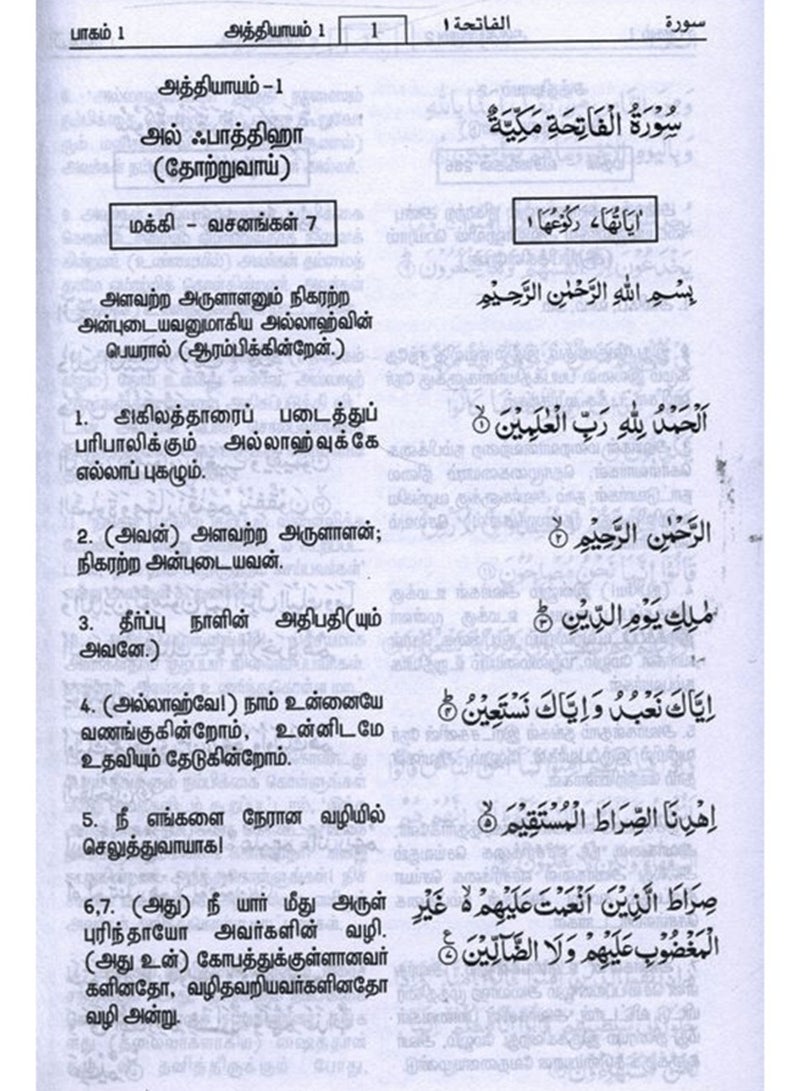 பாகம் 1 அத்தியாயம் 1 1 الفاتحة ١ سورة
அத்தியாயம் -1
அல் ஃபாத்திஹா
(தோற்றுவாய்)
سُوْرَةُ الْفَاتِحَةِ مَكِيَّةٌ
மக்கி - வசனங்கள் 7
اٰيَاتُهَا، رَكُوْعُهَا ١
அளவற்ற அருளாளனும் நிகரற்ற
அன்புடையவனுமாகிய அல்லாஹ்வின்
பெயரால் (ஆரம்பிக்கின்றேன்.)
بِسْمِ اللهِ الرَّحْمٰنِ الرَّحِيْمِ
1. அகிலத்தாரைப் படைத்துப்
பரிபாலிக்கும் அல்லாஹ்வுக்கே
எல்லாப் புகழும்.
اَلْحَمْدُ لِلّٰهِ رَبِّ الْعٰلَمِيْنَ ۙ۱
2. (அவன்) அளவற்ற அருளாளன்;
நிகரற்ற அன்புடையவன்.
الرَّحْمٰنِ الرَّحِيْمِ ۙ۲
3. தீர்ப்பு நாளின் அதிபதி(யும்
அவனே.)
مٰلِكِ يَوْمِ الدِّيْنِ ؕ۳
4. (அல்லாஹ்வே!) நாம் உன்னையே
வணங்குகின்றோம், உன்னிடமே
உதவியும் தேடுகின்றோம்.
اِيَّاكَ نَعْبُدُ وَاِيَّاكَ نَسْتَعِيْنُ ؕ۴
5. நீ எங்களை நேரான வழியில்
செலுத்துவாயாக!
اِهْدِنَا الصِّرَاطَ الْمُسْتَقِيْمَ ۙ۵
6,7. (அது) நீ யார் மீது அருள்
புரிந்தாயோ அவர்களின் வழி.
(அது உன்) கோபத்துக்குள்ளானவர்
களினதோ, வழிதவறியவர்களினதோ
வழி அன்று.
صِرَاطَ الَّذِيْنَ اَنْعَمْتَ عَلَيْهِمْ ۙ۬ غَيْرِ
الْمَغْضُوْبِ عَلَيْهِمْ وَلَا الضَّآلِّيْنَ ۷